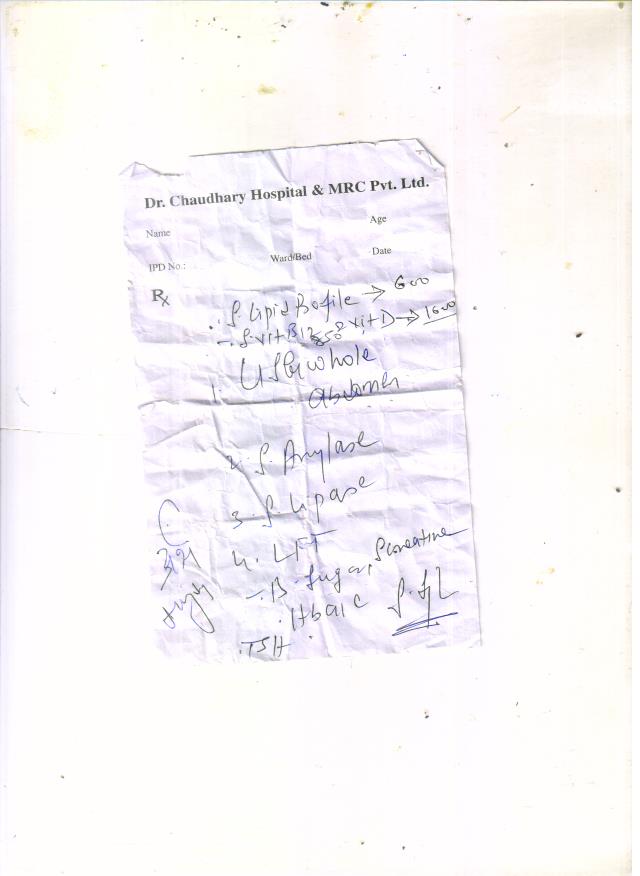 Dr. Chaudhary Hospital & MRC Pvt. Ltd.
Name Age
IPD No.: Ward/Bed Date
Rx
S. Lipid Profile → 600
- S. Vit B12 850 Vit D → 1600
1. USG whole
Abdomen
2. S. Amylase
3. S. Lipase
4. LFT
- B. Sugar, S creatine
. Hba1c
. TSH